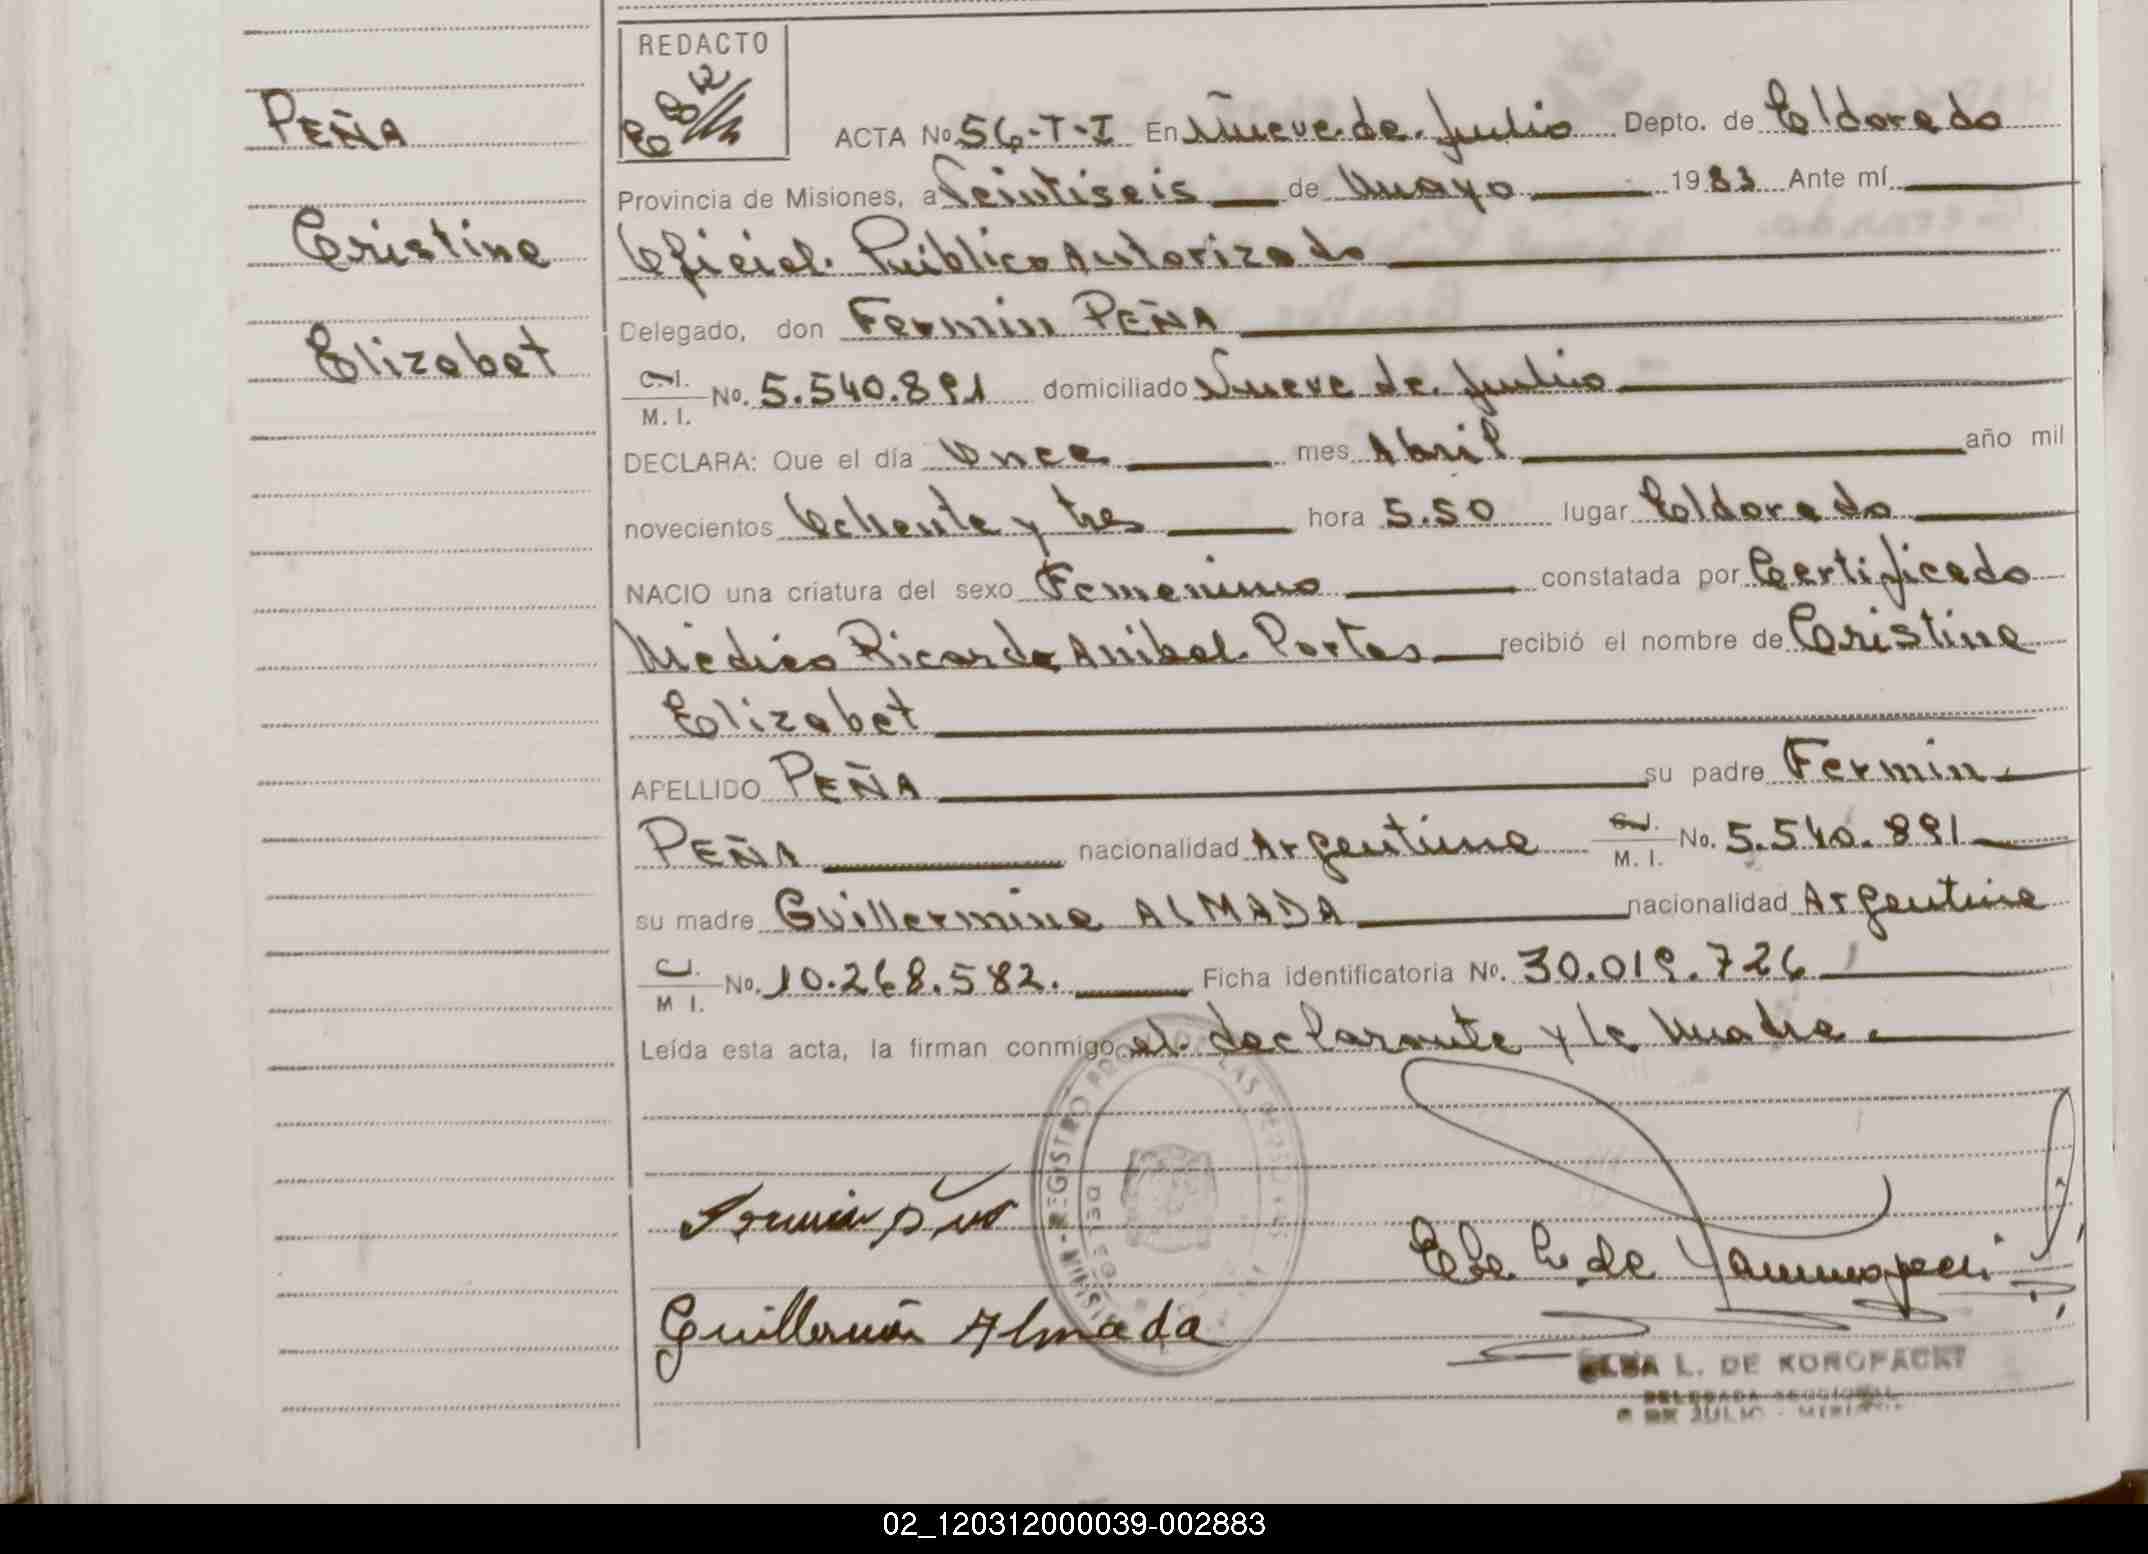 PEÑA
Cristina
Elizabet
REDACTO
ACTA No. 56-T-I En Nueve de Julio Depto. de Eldorado
Provincia de Misiones, a Veintiseis de Mayo 1983 Ante mí
Oficial Público Autorizado
Delegado, don Fermin PEÑA
C.I. M. I. No. 5.540.891 domiciliado Nueve de Julio
DECLARA: Que el día Once mes Abril año mil
novecientos Ochenta y tres hora 5.50 lugar Eldorado
NACIO una criatura del sexo Femenino constatada por Certificado
Médico Ricardo Anibal Portas recibió el nombre de Cristina
Elizabet
APELLIDO PEÑA su padre Fermin
PEÑA nacionalidad Argentina C.I. M. I. No. 5.540.891
su madre Guillermina ALMADA nacionalidad Argentina
C.I. M I. No. 10.268.582. Ficha identificatoria No. 30.019.726
Leída esta acta, la firman conmigo el declarante y la Madre.
REGISTRO LAS
Guillermina Almada
ELSA L. DE KOROPACKI
DELEGADA SECCIONAL
9 DE JULIO - MISIONES
02_120312000039-002883